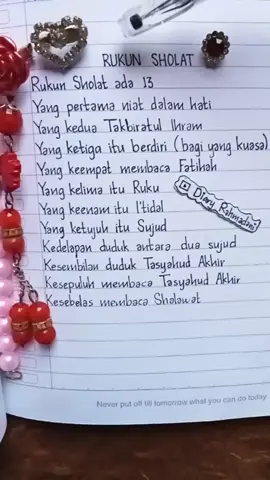 RUKUN SHOLAT
Rukun Sholat ada 13
Yang pertama niat dalam hati
Yang kedua Takbiratul Ihram
Yang ketiga itu berdiri (bagi yang kuasa)
Yang keempat membaca Fatihah
Yang kelima itu Ruku
Yang keenam itu I'tidal
Yang ketujuh itu Sujud
Kedelapan duduk antara dua sujud
Kesembilan duduk Tasyahud Akhir
Kesepuluh membaca Tasyahud Akhir
Kesebelas membaca Sholawat
Diary Rahmadani
Never put off till tomorrow what you can do today